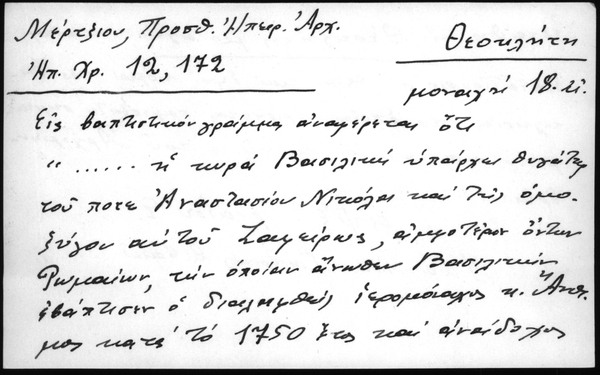 Μέρτζιου, Προσθ. Ἠπειρ. Ἀρχ.
Ἠπ. Χρ. 12, 172
Θεοκλήτη
μοναχή 18. αἰ.
Εἰς βαπτιστικόν γράμμα ἀναφέρεται ὅτι
"...... ἡ κυρά Βασιλική ὑπάρχει θυγάτηρ
τοῦ ποτε Ἀναστασίου Νικόλα καί τῆς ὁμο-
ζύγου αὐτοῦ Ζαφείρως, ἀμφοτέρων ὄντων
Ρωμαίων, τήν ὁποίαν ἄνωθεν Βασιλικήν
ἐβάπτισεν ὁ διαληφθείς ἱερομόναχος κ. Ἄνθι-
μος κατά τό 1750 ἔτος καί ἀνάδοχος